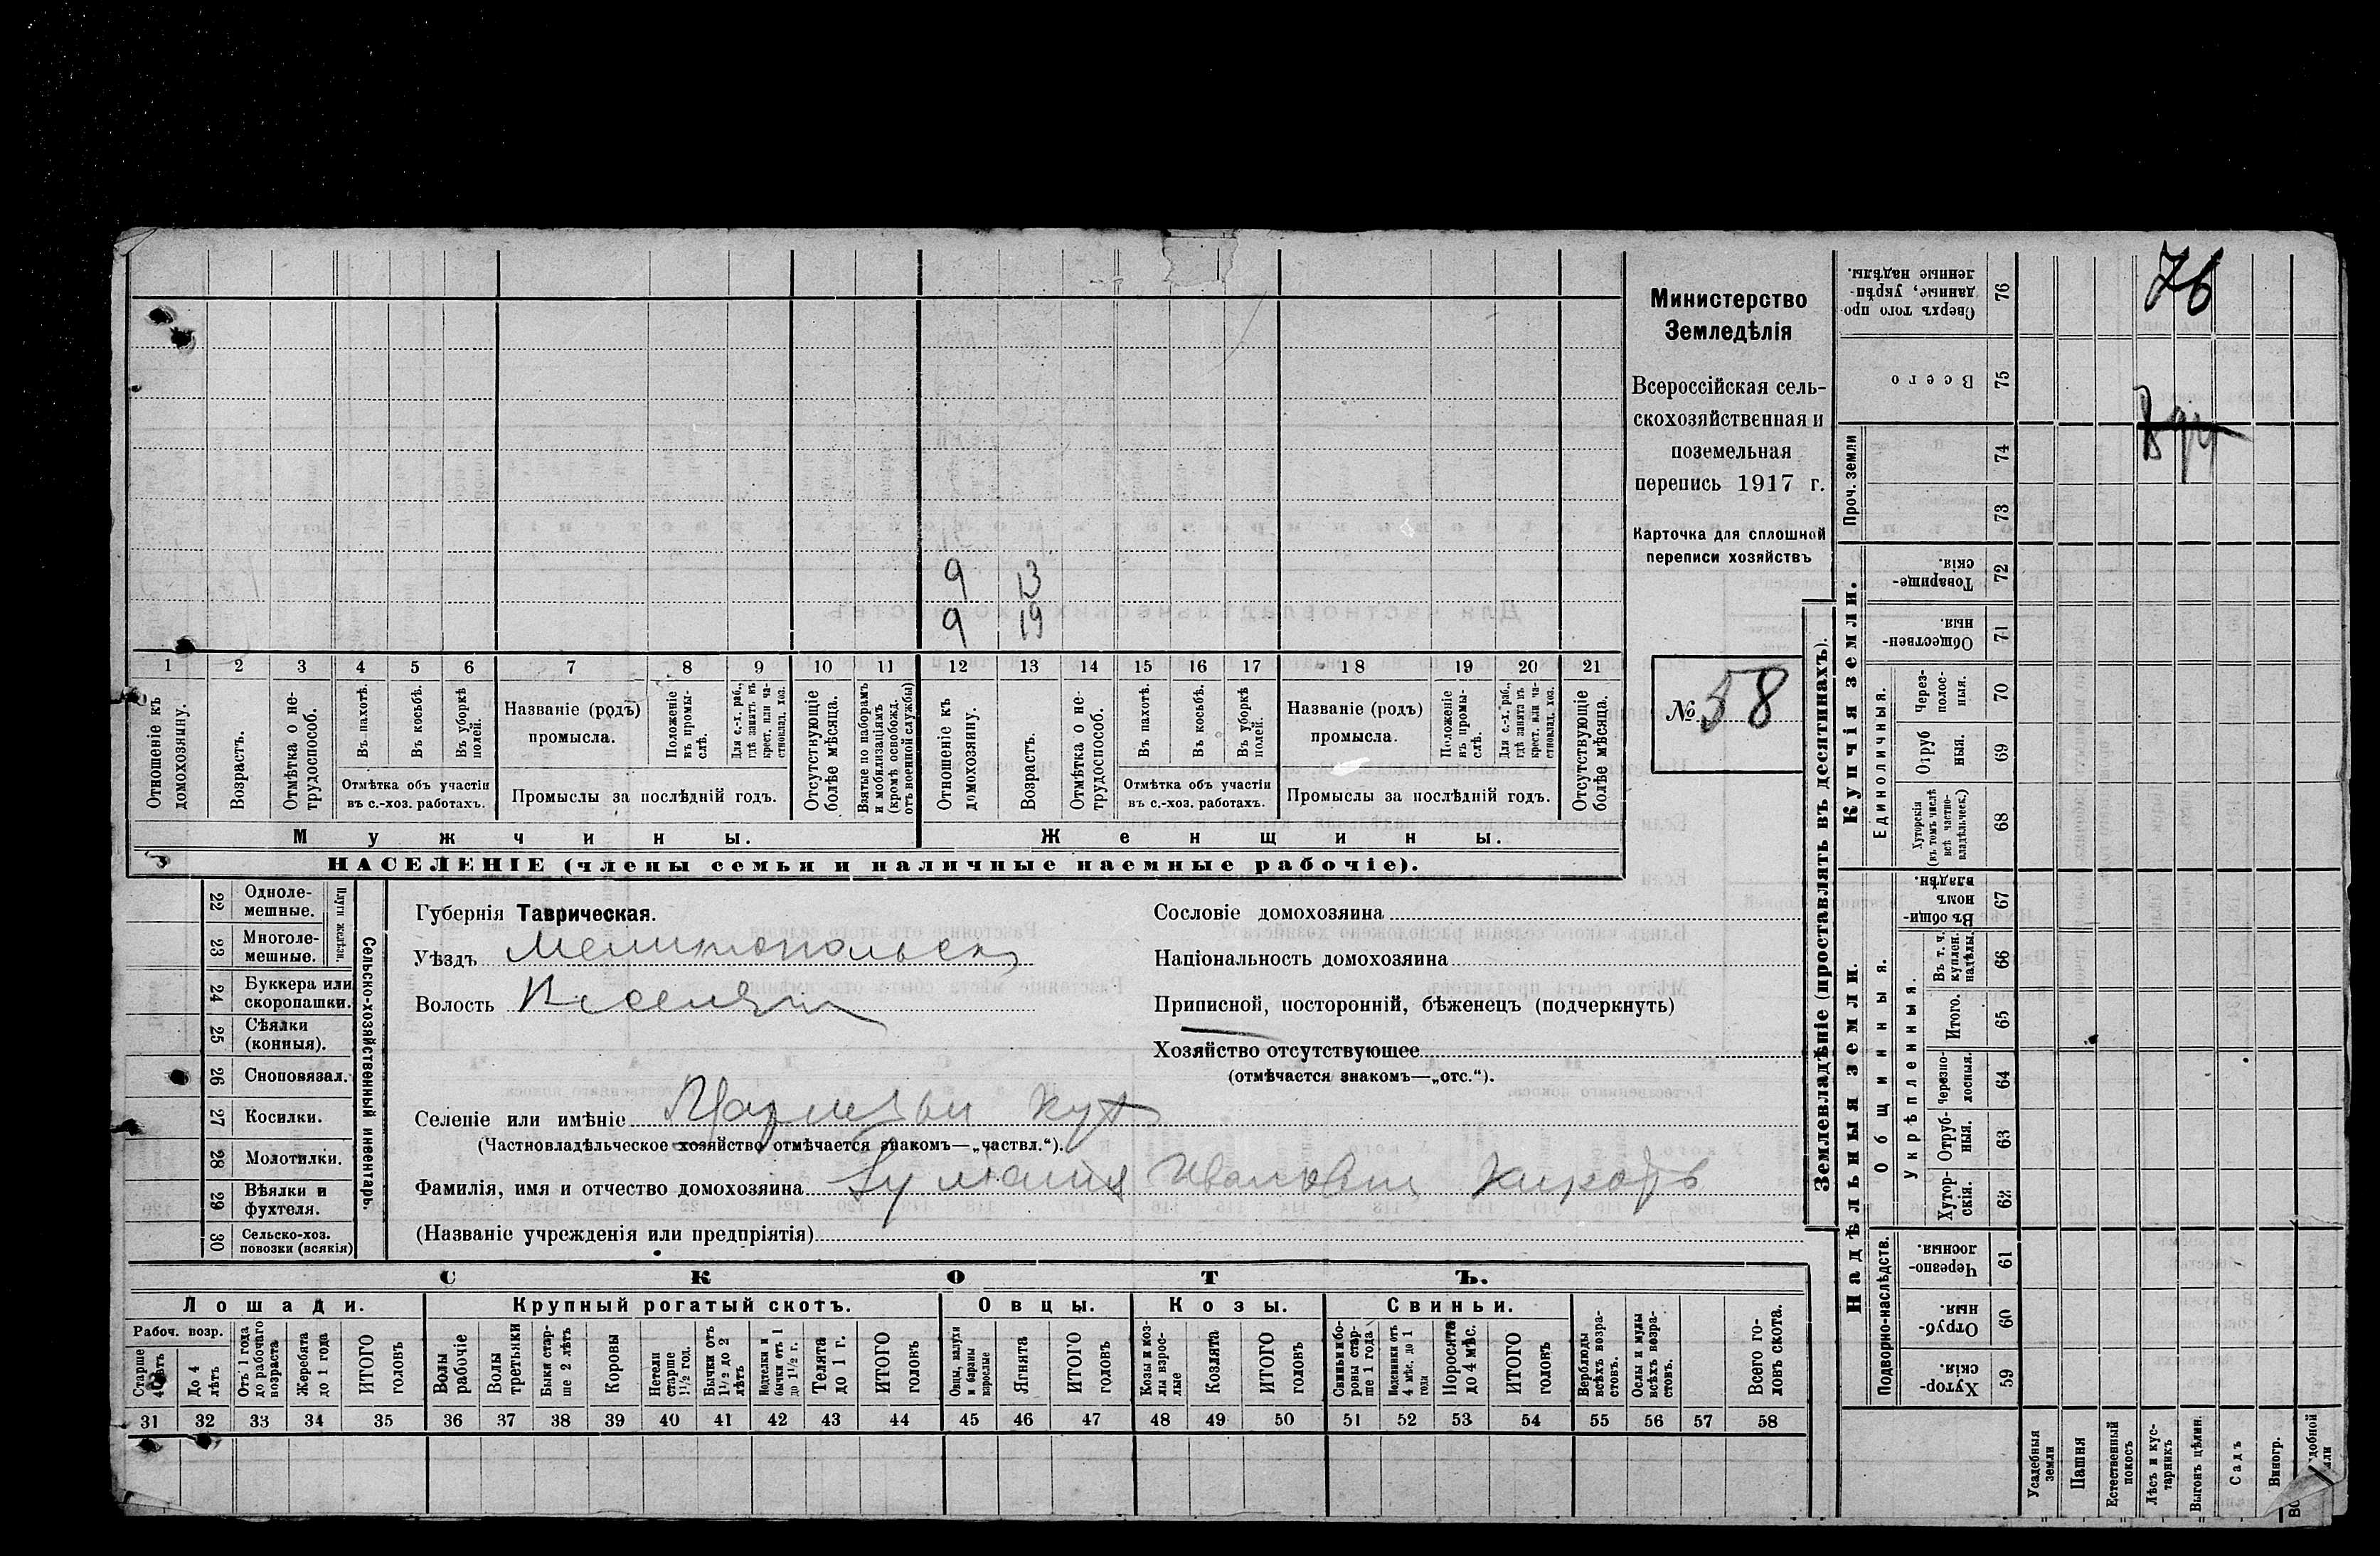 Министерство
Земледѣлія
Всероссійская сель-
скохозяйственная и
поземельная
перепись 1917 г.
Карточка для сплошной
переписи хозяйствъ
№ 58
9 13
9 19
1 2 3 4 5 6 7 8 9 10 11 12 13 14 15 16 17 18 19 20 21
Отношеніе къ домохозяину.
Возрастъ.
Отмѣтка о не-трудоспособ.
Въ пахотѣ.
Въ косьбѣ.
Въ уборкѣ полей.
Отмѣтка объ участіи
въ с.-хоз. работахъ.
Названіе (родъ)
промысла.
Положеніе въ промы-слѣ.
Для с.-х. раб., гдѣ занятъ въ крест. или ча-стновлад. хоз.
Промыслы за послѣдній годъ.
Отсутствующіе болѣе мѣсяца.
Взятые по наборамъ и мобилизаціямъ (кромѣ освобожд. отъ военной службы)
Отношеніе къ домохозяину.
Возрастъ.
Отмѣтка о не-трудоспособ.
Въ пахотѣ.
Въ косьбѣ.
Въ уборкѣ полей.
Отмѣтка объ участіи
въ с.-хоз. работахъ.
Названіе (родъ)
промысла.
Положеніе въ промы-слѣ.
Для с.-х. раб., гдѣ занята въ крест. или ча-стновлад. хоз.
Промыслы за послѣдній годъ.
Отсутствующіе болѣе мѣсяца.
Мужчины.
Женщины.
НАСЕЛЕНІЕ (члены семьи и наличные наемные рабочіе).
Сельско-хозяйственный инвентарь.
Плуги желѣзн.
22 Одноле-мешные.
23 Многоле-мешные.
24 Буккера или скоропашки.
25 Сѣялки (конныя).
26 Сноповязал.
27 Косилки.
28 Молотилки.
29 Вѣялки и фухтеля.
30 Сельско-хоз. повозки (всякія)
Губернія Таврическая.
Уѣздъ Мелитопольск
Волость
Селеніе или имѣніе
(Частновладѣльческое хозяйство отмѣчается знакомъ—„частвл.“).
Фамилія, имя и отчество домохозяина
(Названіе учрежденія или предпріятія)
Сословіе домохозяина
Національность домохозяина
Приписной, посторонній, бѣженецъ (подчеркнуть)
Хозяйство отсутствующее
(отмѣчается знакомъ—„отс.“).
СКОТЪ.
Лошади.
Крупный рогатый скотъ.
Овцы.
Козы.
Свиньи.
Рабоч. возр.
Старше 4 лѣтъ
До 4 лѣтъ
Отъ 1 года до рабочаго возраста
Жеребята до 1 года
ИТОГО головъ
Волы рабочіе
Волы третьяки
Быки стар-ше 2 лѣтъ
Коровы
Нетели старше 1½ год.
Бычки отъ 1½ до 2 лѣтъ
Подтелки и бычки отъ 1 до 1½ г.
Телята до 1 г.
ИТОГО головъ
Овцы, валухи и бараны взрослые
Ягнята
ИТОГО головъ
Козы и коз-лы взрос-лые
Козлята
ИТОГО головъ
Свиньи и бо-ровы стар-ше 1 года
Подсвинки отъ 4 мѣс. до 1 года
Поросята до 4 мѣс.
ИТОГО головъ
Верблюды всѣхъ возра-стовъ.
Ослы и мулы всѣхъ возра-стовъ.
Всего го-ловъ скота.
31 32 33 34 35 36 37 38 39 40 41 42 43 44 45 46 47 48 49 50 51 52 53 54 55 56 57 58
Землевладѣніе (проставлять въ десятинахъ).
Надѣльныя земли.
Купчія земли.
Проч. земли
Сверхъ того про-данные, укрѣп-ленные надѣлы. 76
Всего 75
74
73
Товарище-скія. 72
Обществен-ныя. 71
Единоличныя.
Через-полос-ныя. 70
Отруб ныя. 69
Хуторскія (въ томъ числѣ всѣ частно-владѣльческ.) 68
Общинныя.
Въ общин-номъ владѣн. 67
Укрѣпленныя.
Въ т. ч. куплен. надѣлы. 66
Итого. 65
Черезпо-лосныя. 64
Отруб-ныя. 63
Хутор-скія. 62
Подворно-наслѣдств.
Черезпо-лосныя. 61
Отруб-ныя. 60
Хутор-скія. 59
Усадебныя земли
Пашня
Естественный покосъ
Лѣсъ и кус-тарникъ
Выгонъ цѣлин.
Садъ
Виногр.
76